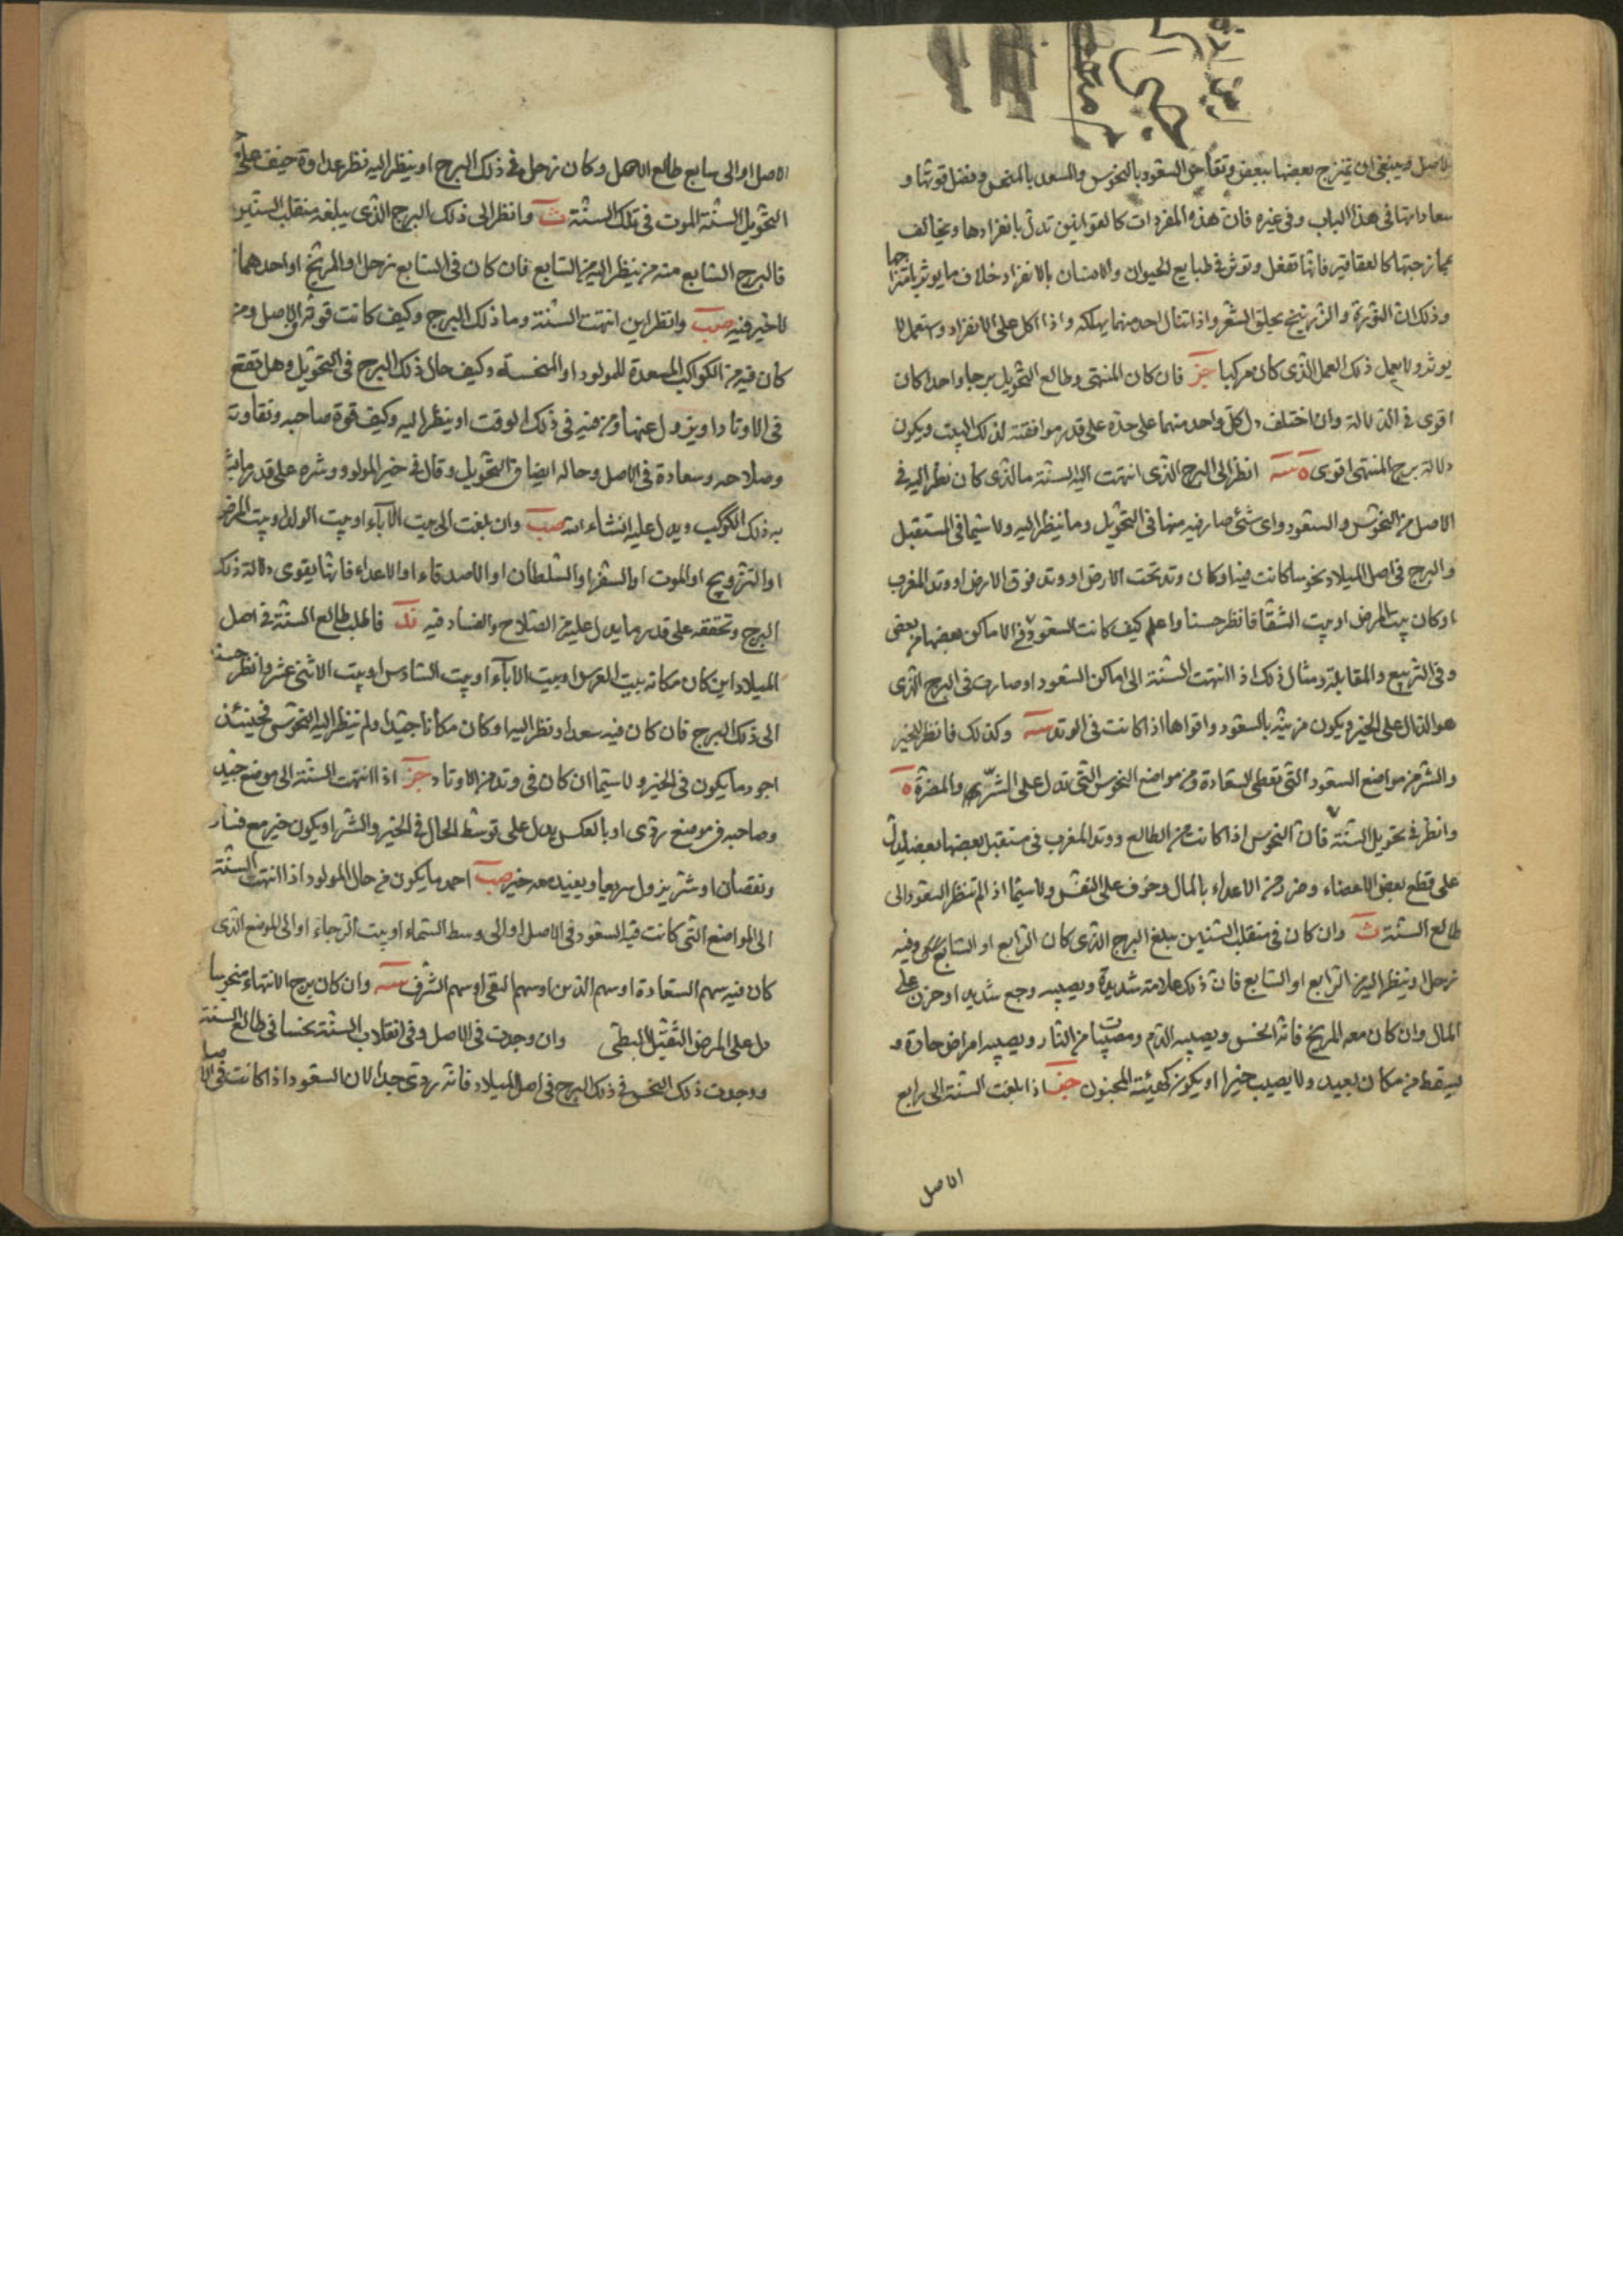 الاصل وينبغى ان يمتزج بعضها ببعض السعود بالنحوس والسعد بالمنحس وفضل قوتها و
سعاداتها فى هذا الباب وفى غيره فان هذه المفردات كالقوانين تدل بانفرادها ويخالف
ممازجتها كالعقاقير فانها تفعل وتوثر فى طبايع الحيوان والانسان بالانفراد خلاف ما يوثر بامتزاجها
وذلك ان النورة والزرنيخ يحلق الشعر واذا تناول احد منهما يهلكه واذا اكل على الانفراد واستعمل لا
يوثر ولا يعمل ذلك العمل الذى كان مركبا فان كان المنتهى وطالع التحويل برجا واحدا كان
اقوى فى الدلالة وان اختلف دل كل واحد منهما على حدة على قدر موافقته لذلك البيت ويكون
دلالة برج المنتهى اقوى ه انظر الى البرج الذى انتهت اليه السنة ما الذى كان نظر اليه فى
الاصل من النحوس والسعود واى شئ صار فيه منها فى التحويل وما ينظر اليه ولا سيما فى المستقبل
والبرج فى اصل الميلاد نحوسا كانت فيه او كان وتد تحت الارض او وتد فوق الارض او وتد المغرب
او كان بيت المرض او بيت الشقا فانظر حسنا واعلم كيف كانت السعود فى الاماكن بعضها من بعض
وفى التربيع والمقابلة ومثال ذلك اذا انتهت السنة الى اماكن السعود او صارت فى البرج الذى
هو الدال على الخير ويكون مزينة بالسعود واقواها اذا كانت فى الوتد وكذلك فانظر للخير
والشر من مواضع السعود التى تعطى السعادة ومن مواضع النحوس التى تدل على الشر والمضرة ه
وانظر فى تحويل السنة فان النحوس اذا كانت من الطالع ووتد المغرب فى مستقبل بعضها بعضا يدل
على قطع بعض الاعضاء وضرر من الاعداء بالمال وخوف على النفس ولا سيما اذ لم تنظر السعود الى
طالع السنة ث وان كان فى منقلب السنين مبلغ البرج الذى كان الرابع او السابع وفيه
زحل او ينظر اليه من الرابع او السابع فان ذلك علامة شديدة ويصيبه وجع شديد او حزن على
المال وان كان معه المريخ فانه انحس ويصيبه الدم ومصيبات من النار ويصيبه امراض حادة و
يسقط من مكان بعيد ولا يصيب خيرا او يكون كهيئة المجنون اذا بلغت السنة الى رابع
الاصل
الاصل او الى سابع طالع الاصل وكان زحل فى ذلك البرج او ينظر اليه نظر عداوة خيف على
التحويل السنة الموت فى تلك السنة ث وانظر الى ذلك البرج الذى يبلغه منقلب السنين
فالبرج السابع منه من ينظر اليه من السابع فان كان فى السابع زحل او المريخ او احدهما
لا خير فيه صب وانظر اين انتهت السنة وما ذلك البرج وكيف كانت قوته فى الاصل ومن
كان فيه من الكواكب المسعدة للمولود او المنحسة وكيف حال ذلك البرج فى التحويل وهل يقع
فى الاوتاد او يزول عنها ومن فيه فى ذلك الوقت او ينظر اليه وكيف قوة صاحبه وتفاوته
وصلاحه وسعادة فى الاصل وحاله ايضا فى التحويل وقال فى خير المولود وشره على قدر ما
به ذلك الكوكب ويدل عليه انشاء الله صب وان بلغت الى بيت الآباء او بيت الولد او بيت المرض
او التزويج او الموت او السفر او السلطان او الاصدقاء او الاعداء فانها يقوى دلالة ذلك
البرج وتحققه على قدر ما يدل عليه من الصلاح والفساد فيه فاطلب طالع السنة فى اصل
الميلاد اين كان مكانه بيت العرس او بيت الآباء او بيت السادس او بيت الاثنى عشر وانظر حسنا
الى ذلك البرج فان كان فيه سعدا ونظر اليه او كان مكانا جيدا ولم ينظر اليه النحوس فحينئذ
اجود ما يكون فى الخير ولا سيما ان كان فى وتد من الاوتاد اذا انتهت السنة الى موضع جيد
وصاحبه فى موضع ردى او بالعكس يدل على توسط الحال فى الخير والشر او يكون خير مع فساد
ونقصان او شر يزول سريعا ويعيد معه خير صب احمد ما يكون من حال المولود اذا انتهت السنة
الى المواضع التى كانت فيه السعود فى الاصل او الى وسط السماء او بيت الرجاء او الى الموضع الذى
كان فيه سهم السعادة او سهم الدين او سهم التقى او سهم الشرف وان كان برج الانتهاء منحوسا
دل على المرض الثقيل البطى وان وجدت فى الاصل وفى انقلاب السنة نحسا فى طالع السنة
ووجدت ذلك النحس فى ذلك البرج فى اصل الميلاد فانه ردى جدا لان السعود اذا كانت فى الاصل